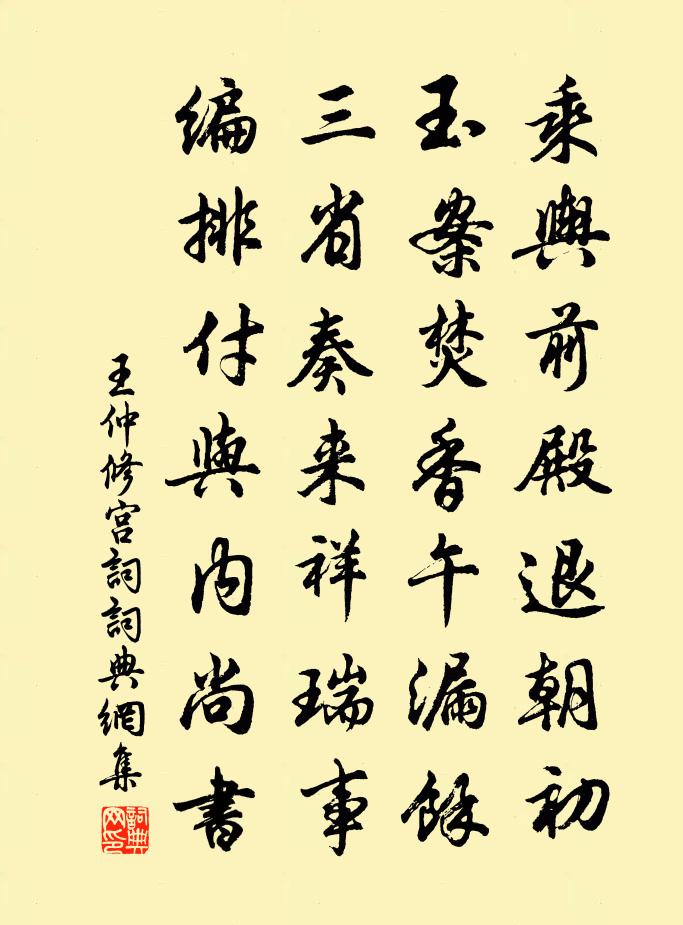 乘輿前殿退朝初
玉案焚香午漏餘
三省奏来祥瑞事
编排付與内尚書
王仲修宫詞詞典網集
詞典
网印